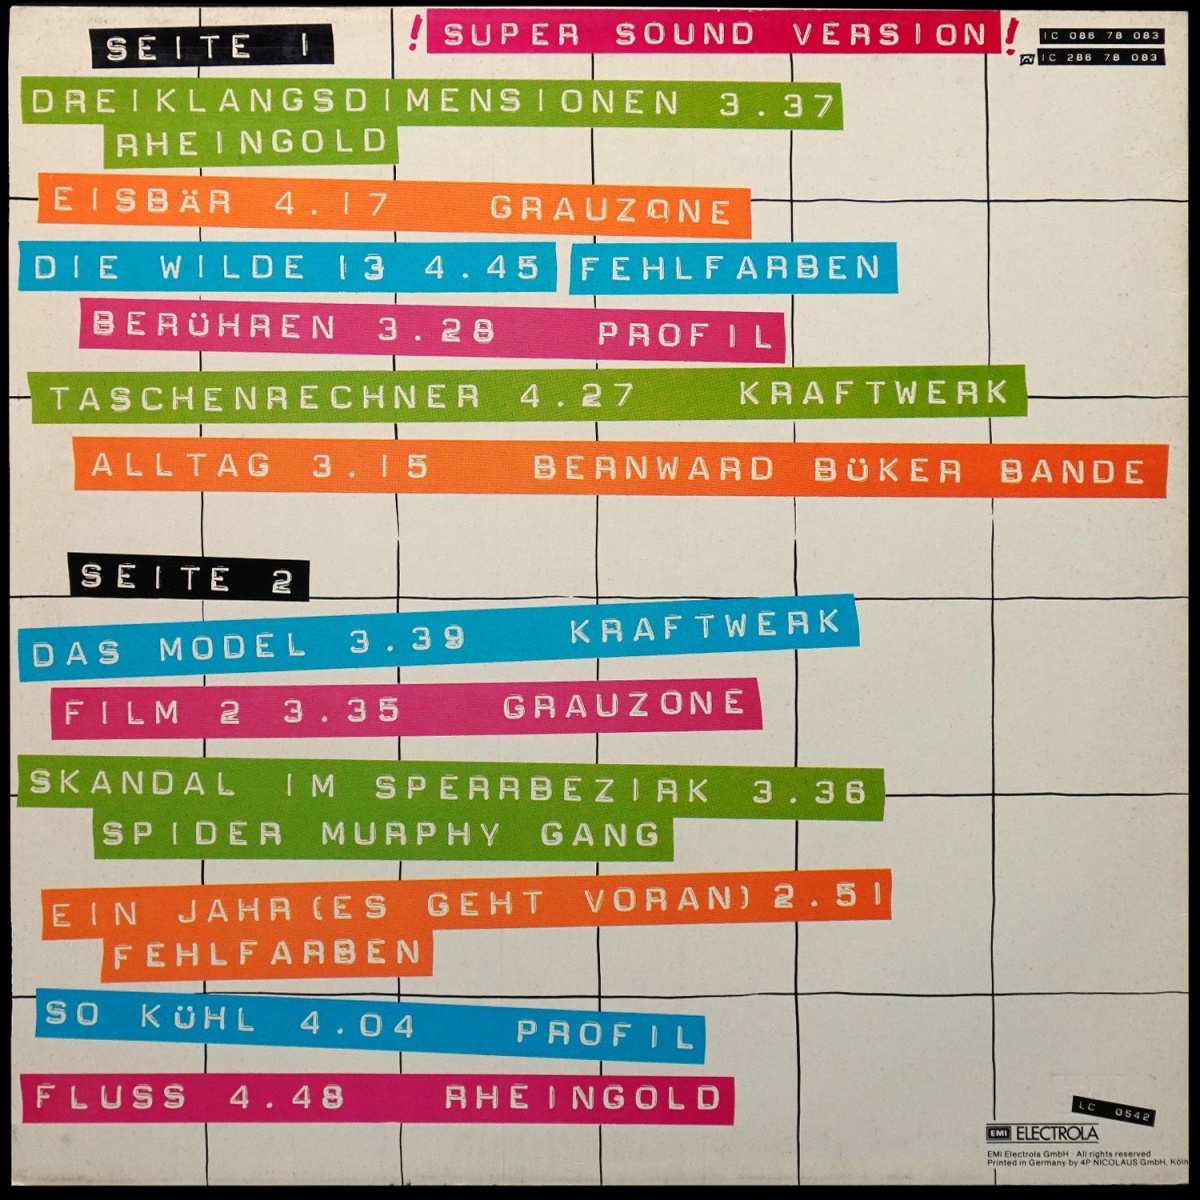 SEITE 1
! SUPER SOUND VERSION !
1C 086 78 083
1C 286 78 083
DREIKLANGSDIMENSIONEN 3.37
RHEINGOLD
EISBÄR 4.17 GRAUZONE
DIE WILDE 13 4.45 FEHLFARBEN
BERÜHREN 3.28 PROFIL
TASCHENRECHNER 4.27 KRAFTWERK
ALLTAG 3.15 BERNWARD BÜKER BANDE
SEITE 2
DAS MODEL 3.39 KRAFTWERK
FILM 2 3.35 GRAUZONE
SKANDAL IM SPERRBEZIRK 3.36
SPIDER MURPHY GANG
EIN JAHR (ES GEHT VORAN) 2.51
FEHLFARBEN
SO KÜHL 4.04 PROFIL
FLUSS 4.48 RHEINGOLD
LC 0542
EMI ELECTROLA
EMI Electrola GmbH · All rights reserved
Printed in Germany by 4P NICOLAUS GmbH, Köln